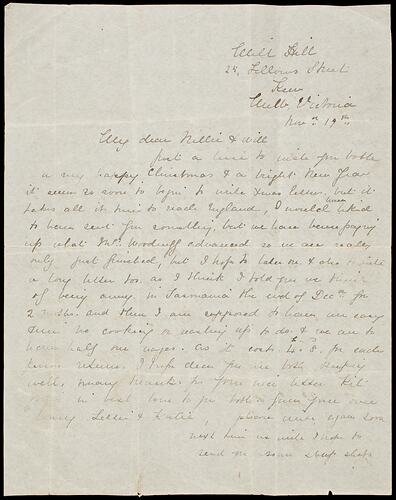 Mill Hill
24, Fellows Street
Kew
Melb, Victoria
Nov 19th
My dear Nellie & Will
Just a line to wish you both
a very happy Christmas & a bright New Year
it seems so soon to begin to write Xmas letters, but it
takes all its time to reach England, I would have liked
to have sent you something, but we have been paying
up what Mr. Woodruff advanced so we are really
only just finished, but I hope to later on & also to write
a long letter too, as I think I told you we think
of being away in Tasmania the end of Decm for
2 mths. and then I am supposed to have an easy
time no cooking or washing up to do. & we are to
have half our wages. as it costs £4. 8. for each
return. I hope dear you are both keeping
well, many thanks for your nice letter
in best love to you both from your ever
loving Lessie & Katie, please write again soon
next time we write I hope to
send you some snap shots